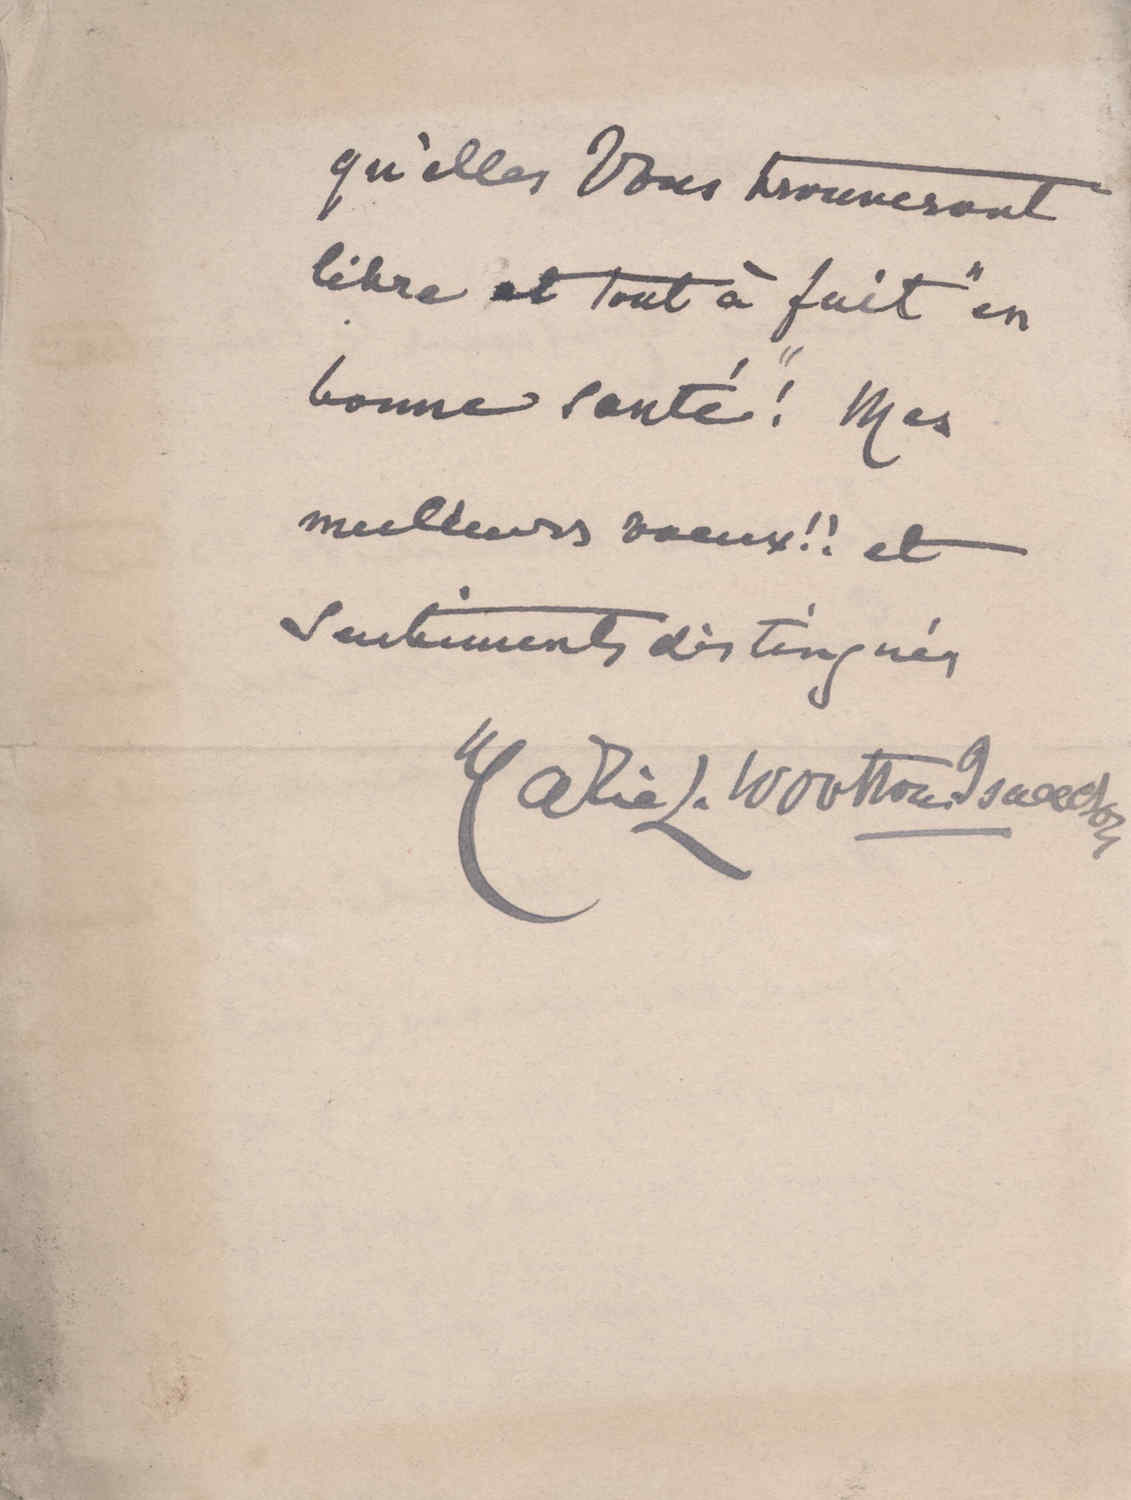 qu'elles Vous trouveront
libre et tout à fait "en
bonne santé"! Mes
meilleurs voeux!! et
Sentiments distingués
Marie L. Wootton.